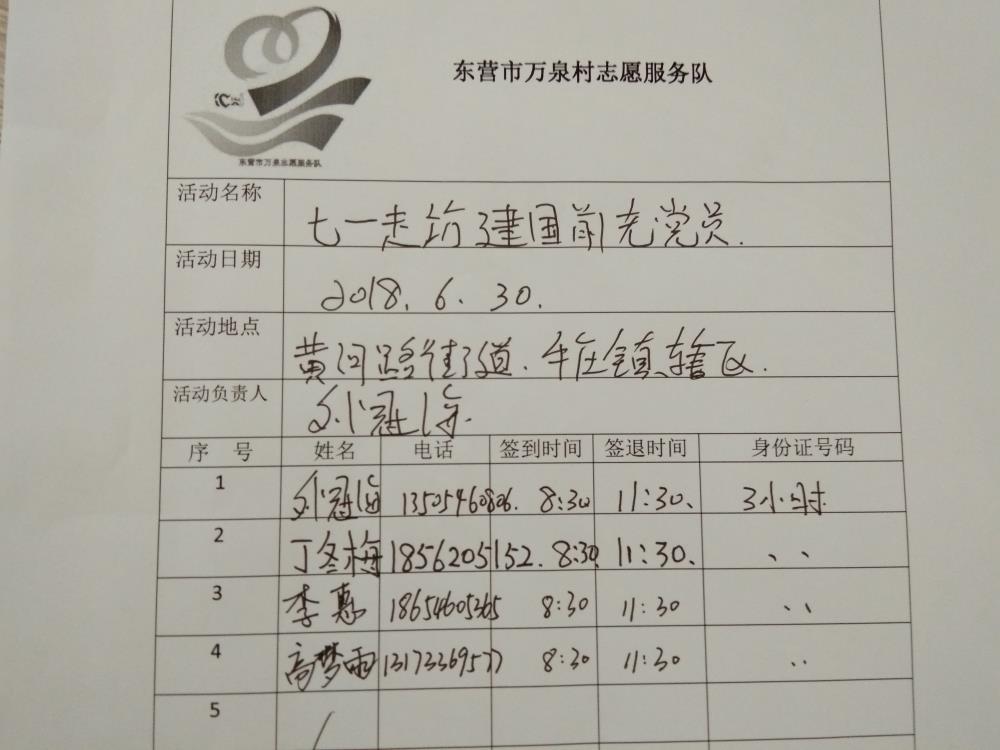 东营市万泉村志愿服务队
东营市万泉志愿服务队
活动名称 七一走访建国前老党员.
活动日期 2018.6.30.
活动地点 黄河路街道.牛庄镇辖区.
活动负责人 刘冠海
序 号 姓名 电话 签到时间 签退时间 身份证号码
1 刘冠海 13505460806. 8:30 11:30、 3小时.
2 丁冬梅 18562051152. 8:30 11:30、 、、
3 李惠 18654605365 8:30 11:30 、、
4 高梦雨 13173369577 8:30 11:30 、、
5